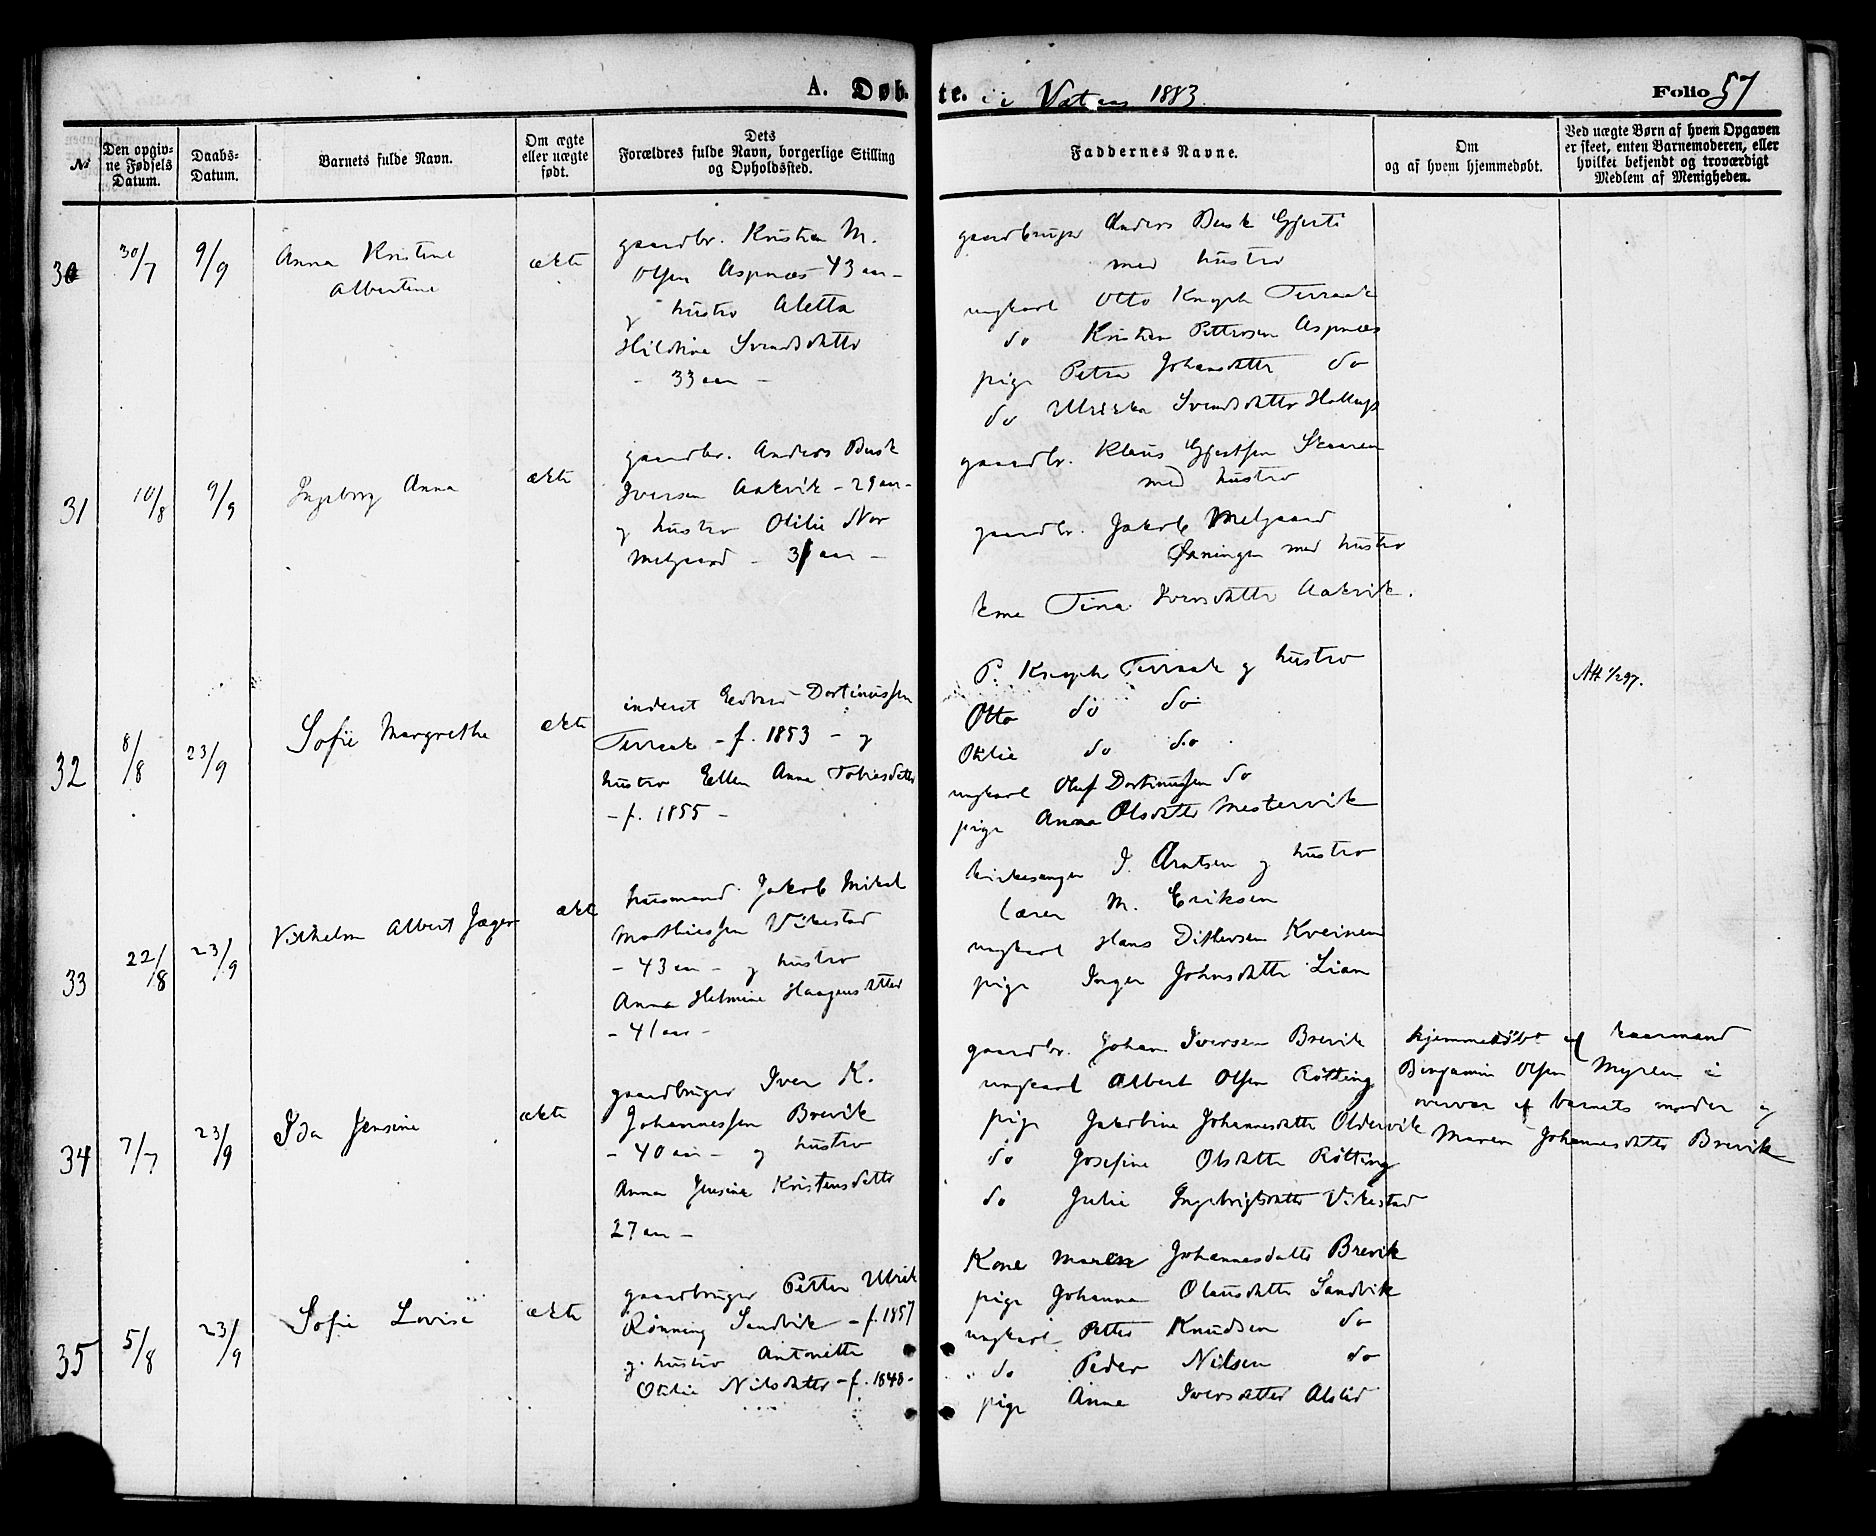 A. Døbte. i Vatsaas 1883. Folio 57
No
Den opgivne Fødsels Datum.
Daabs-Datum.
Barnets fulde Navn.
Om ægte eller uægte født.
Dets Forældres fulde Navn, borgerlige Stilling og Opholdssted.
Faddernes Navne.
Om og af hvem hjemmedøbt.
Ved uægte Børn af hvem Opgaven er skeet, enten Barnemoderen, eller hvilket bekjendt og troværdigt Medlem af Menigheden.
30
30/7
9/9
Anna Kristine
Albertine
ækte
gaardbr. Kristen M.
Olsen Aspnæs 43 aar –
og hustro Aletta
Hildine Svendsdatter
– 33 aar –
gaardbruger Anders Busk
med hustro
ungkarl Otto Knoph Terraak
do Kristen Pettersen Aspnæs
pige Petra Johansdatter do
do Ulrikka Svendsdatter
31
10/8
9/9
Ingeborg Anna
ækte
gaardbr. Anders Busk
Iversen Aakvik – 29 aar –
og hustro Otilie Nor
Melgaard – 31 aar –
gaardbr. Klaus Gjertsen Skaaren
med hustro
gaardbr. Jakob Melgaard
Øxningen med hustro
kone Tina Iversdatter Aakvik.
32
8/8
23/9
Sofie Margrethe
ækte
inderst Edvard Dortinussen
Terraak – f. 1853 – og
hustro Ellen Anna Tobiasdatter
– f. 1855 –
P. Knoph Terraak og hustro
Otto do do
Otilie do do
ungkarl Oluf Dortinussen do
pige Anna Olsdatter Mestervik
Att 1/2 97.
33
22/8
23/9
Vilhelm Albert Jæger
ækte
husmand Jakob Mikal
Mathiessen Vikestad
– 43 aar – og hustro
Anna Helmine Haagensdatter
– 41 aar –
kirkesanger I. Arntsen og hustro
lærer M. Eriksen
ungkarl Hans Ditlevsen Kveinen
pige Inger Johnsdatter Lian
34
7/7
23/9
Ida Jensine
ækte
gaardbruger Iver K.
Johannessen Brevik
– 40 aar – og hustro
Anna Jensine Kristensdatter
27 aar –
gaardbr. Johan Iversen Brevik
ungkarl Albert Olsen Røtting
pige Jakobine Johannesdatter Oldervik
do Josefine Olsdatter Røtting
do Julie Ingebrigtsdatter Vikestad
hjemmedøbt af kaarmand
Benjamin Olsen Myren i
overvær af barnets moder og
Maren Johannesdatter Brevik
35
5/8
23/9
Sofie Lovise
ækte
gaardbruger Petter Ulrik
Rønning Sandvik – f. 1857
og hustro Antonette
Otilie Nilsdatter – f. 1848 –
Kone Maren Johannesdatter Brevik
pige Johanna Olausdatter Sandvik
ungkarl Petter Knudsen do
do Peder Nilsen do
pige Anne Iversdatter Alslid